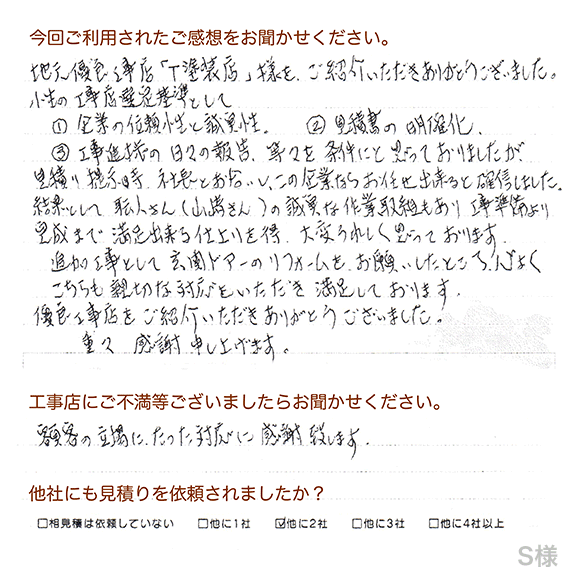 今回ご利用されたご感想をお聞かせください。
地元優良工事店「T塗装店」様を、ご紹介いただきありがとうございました。
小生の工事店選定基準として
① 企業の信頼性と誠実性。 ② 見積書の明確化、
③ 工事進捗の日々の報告、等々を条件にと思っておりましたが
見積り提示時、社長とお会いし、この企業ならお任せ出来ると確信しました。
結果として職人さん(山崎さん)の誠実な作業取組もあり工事準備より
完成まで満足出来る仕上りを得、大変うれしく思っております。
追加工事として玄関ドアーのリフォームをお願いしたところ、心よく
こちらも親切な対応をいただき満足しております。
優良工事店をご紹介いただきありがとうございました。
重々感謝申し上げます。
工事店にご不満等ございましたらお聞かせください。
顧客の立場にたった対応に感謝致します。
他社にも見積りを依頼されましたか？
□相見積は依頼していない □他に1社 ☑他に2社 □他に3社 □他に4社以上
S様